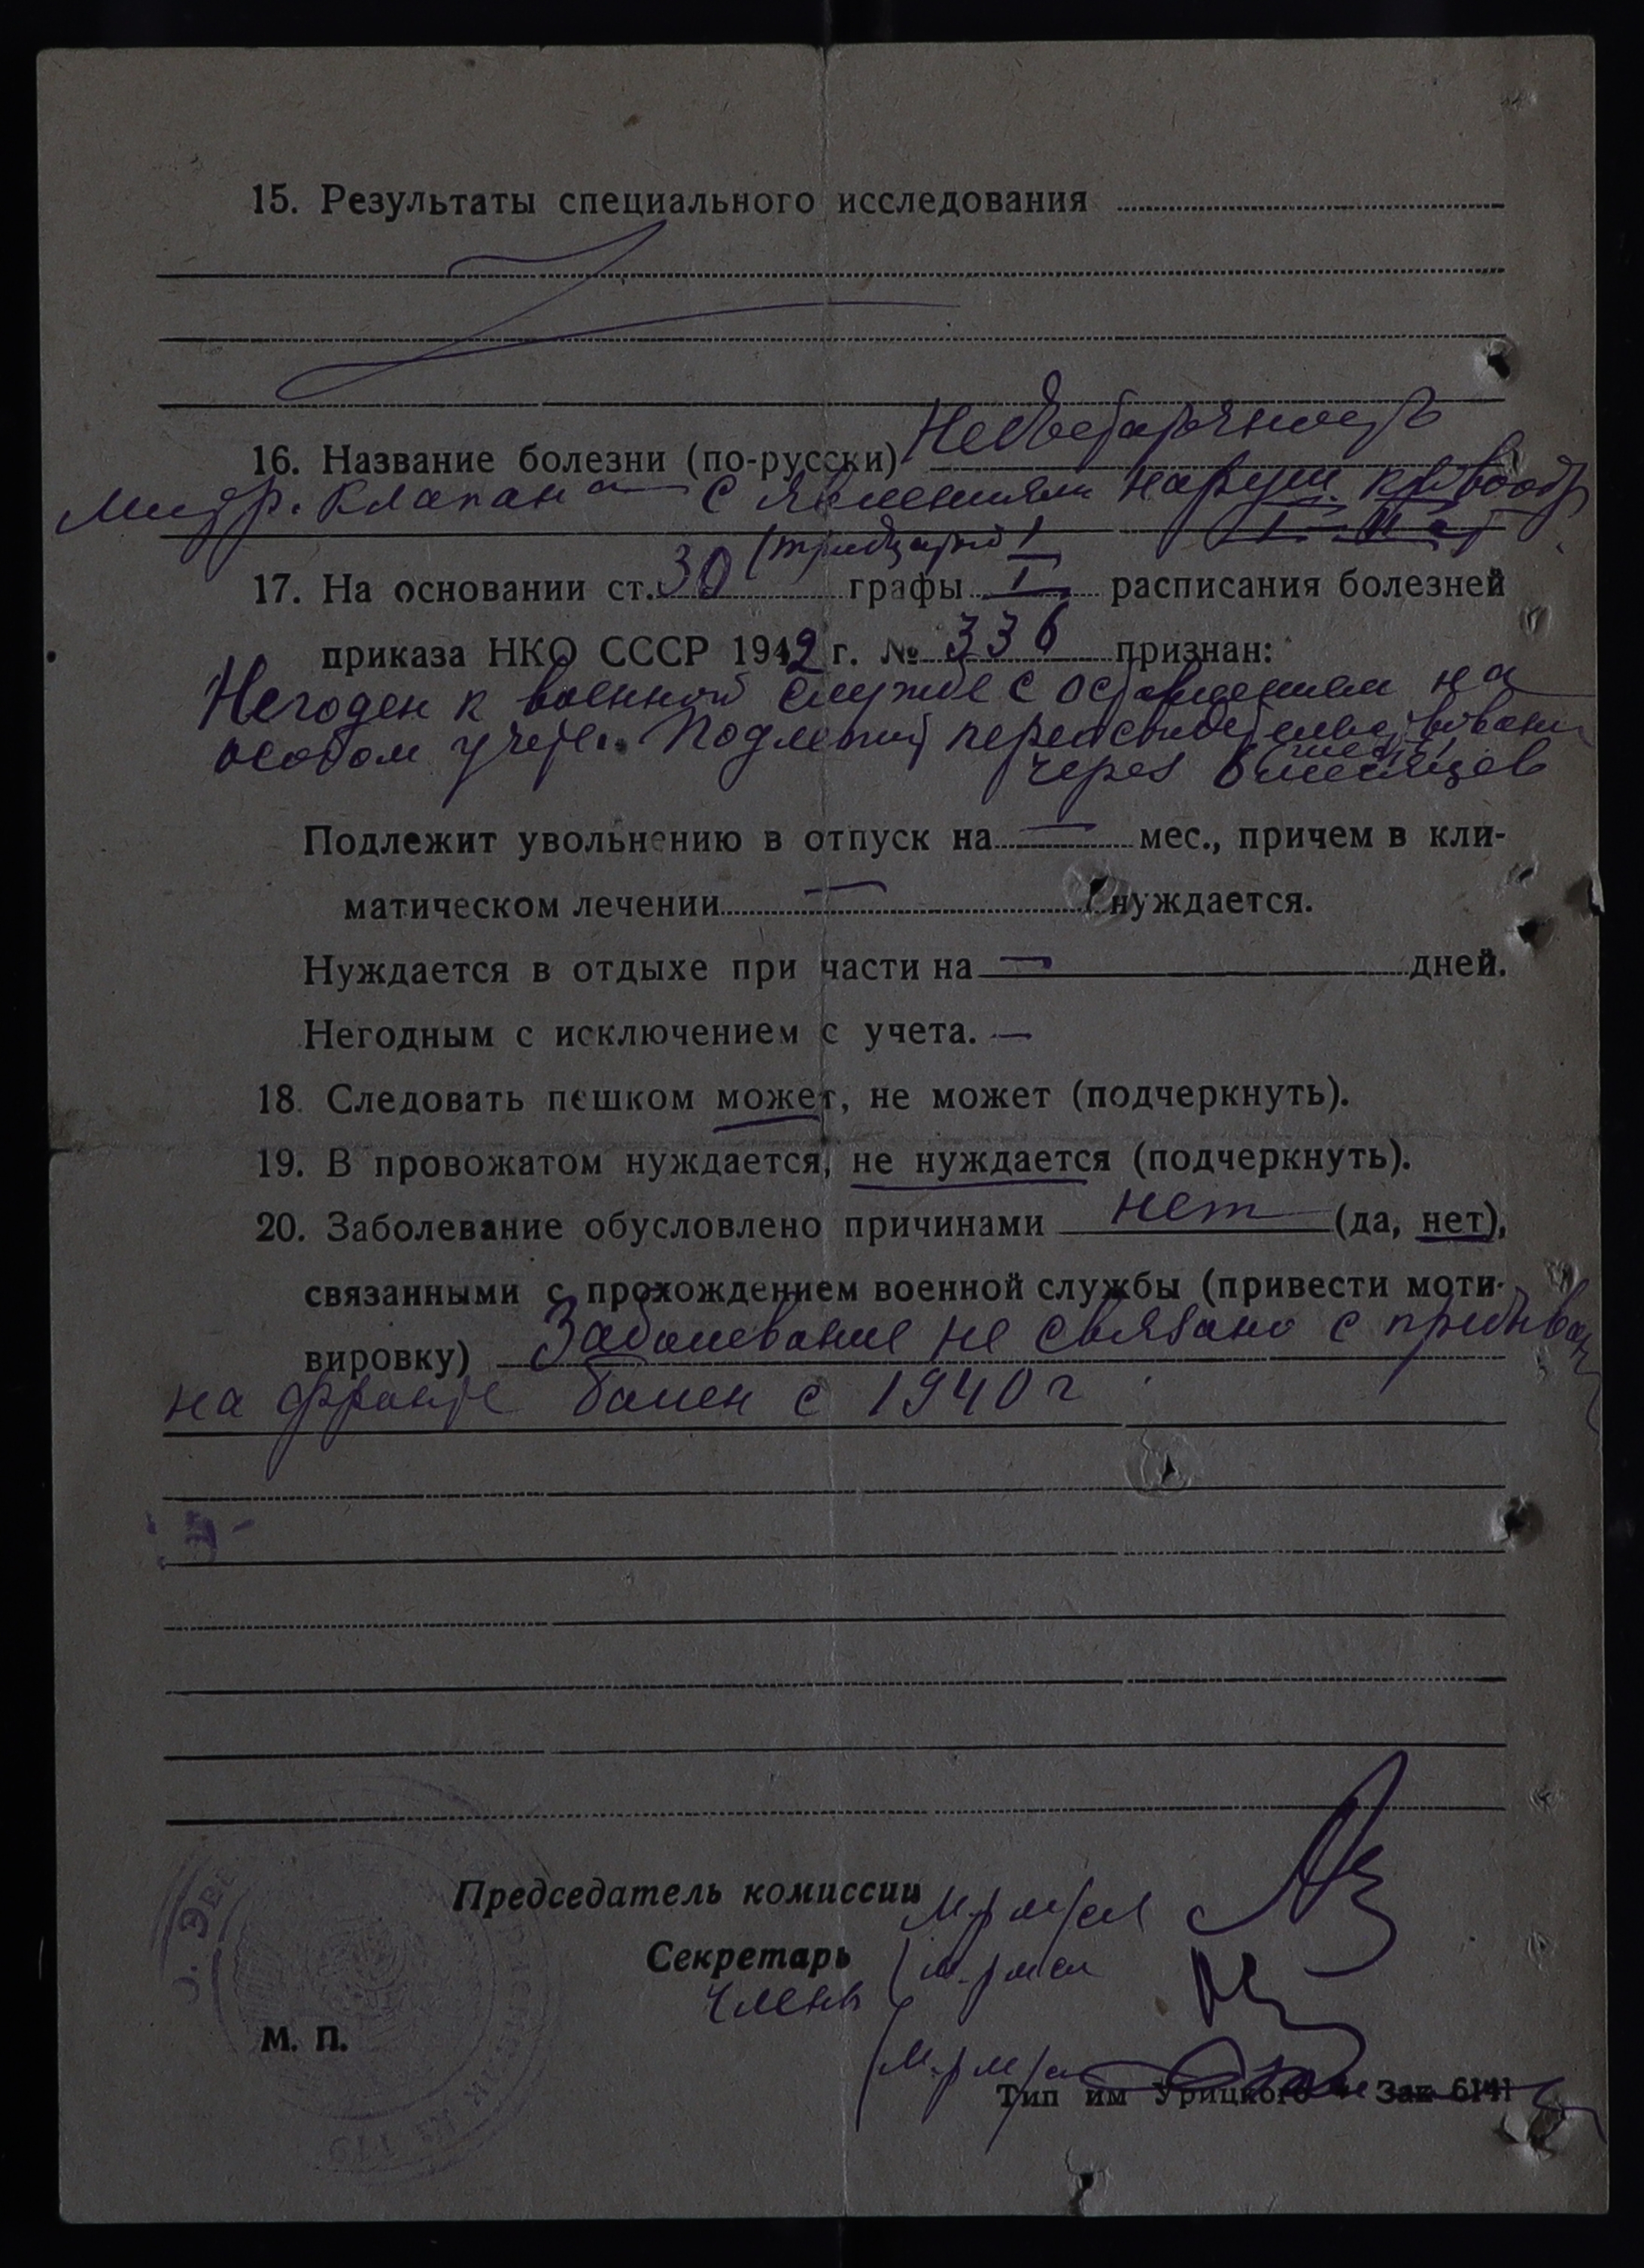 15. Результаты специального исследования
16. Название болезни (по-русски) Недостаточность
митр. клапана с явлениями наруш. кровообр
I - II ст
(тридцать)
17. На основании ст. 30 графы I расписания болезней
приказа НКО СССР 1942 г. № 336 признан:
Негоден к военной службе с оставлением на
особом учете. Подлежит переосвидетельствовани
через 6 месяцев
Подлежит увольнению в отпуск на — мес., причем в кли-
матическом лечении — нуждается.
Нуждается в отдыхе при части на — дней.
Негодным с исключением с учета. —
18. Следовать пешком может, не может (подчеркнуть).
19. В провожатом нуждается, не нуждается (подчеркнуть).
20. Заболевание обусловлено причинами нет (да, нет),
связанными с прохождением военной службы (привести моти-
вировку) Заболевание не связано с
на фронте болен с 1940 г
Председатель комиссии
Секретарь
члены
М. П.
Тип им Урицкого Зак 6141